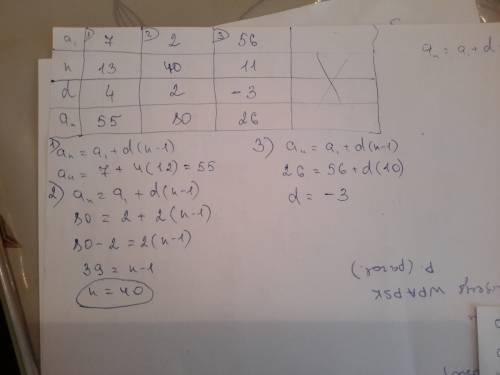 a₁ 1) 7 2) 2 3) 56
n 13 40 11
d 4 2 -3
aₙ 55 80 26
aₙ = a₁ + d
1) aₙ = a₁ + d(n-1)
aₙ = 7 + 4(12) = 55
2) aₙ = a₁ + d(n-1)
80 = 2 + 2(n-1)
80-2 = 2(n-1)
39 = n-1
n = 40
3) aₙ = a₁ + d(n-1)
26 = 56 + d(10)
d = -3
WPAPSK